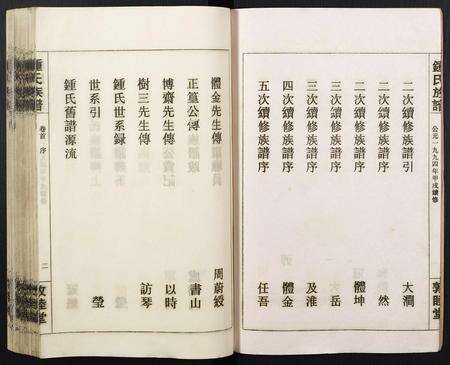 鍾氏族譜
公元一九九四年甲戌續修
敦睦堂
二次續修族譜引 大澗
二次續修族譜序 然
二次續修族譜序 體坤
三次續修族譜序 大岳
三次續修族譜序 及淮
四次續修族譜序 體金
五次續修族譜序 任吾
體金先生傳 周蔚綬
正篁公傳 書山
博齋先生傳 以時
樹三先生傳 訪琴
鍾氏世系録
世系引 瑩
鍾氏舊譜源流
鍾氏族譜
卷首 序
二
敦睦堂